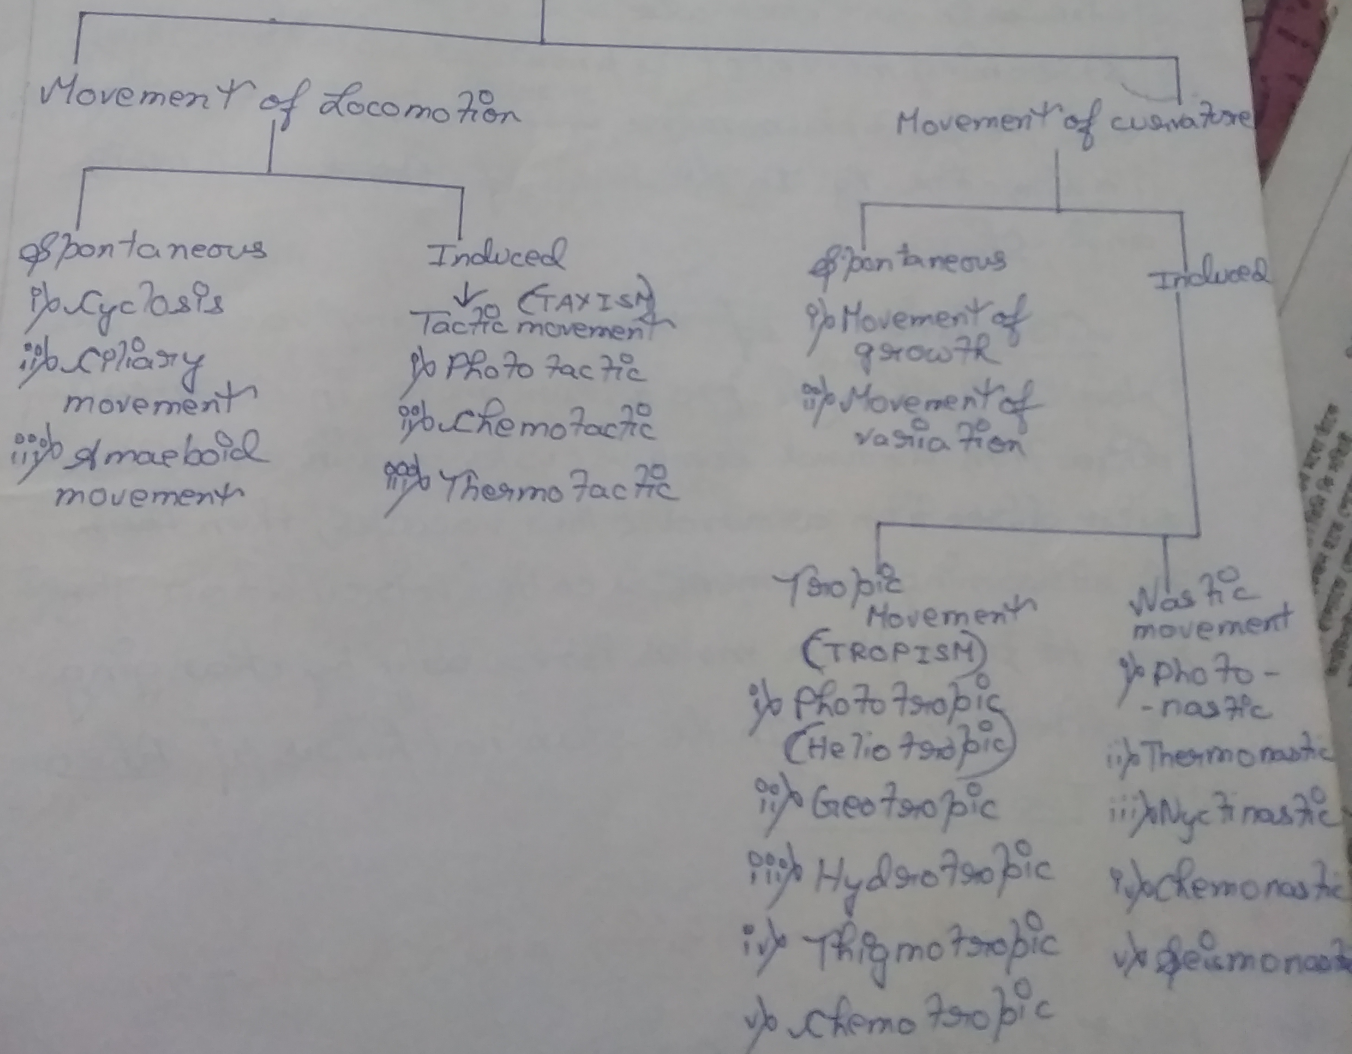 Movement of Locomotion
Movement of curvature
Spontaneous
i) Cyclosis
ii) Ciliary
movement
iii) Amaeboid
movement
Induced
↓ (TAXISM)
Tactic movement
i) Phototactic
ii) Chemotactic
iii) Thermotactic
Spontaneous
i) Movement of
growth
ii) Movement of
variation
Induced
Tropic
Movement
(TROPISM)
i) Phototropic
(Heliotropic)
ii) Geotropic
iii) Hydrotropic
iv) Thigmotropic
v) Chemotropic
Nastic
movement
i) Photo-
-nastic
ii) Thermonastic
iii) Nyctinastic
iv) Chemonastic
v) Seismonastic